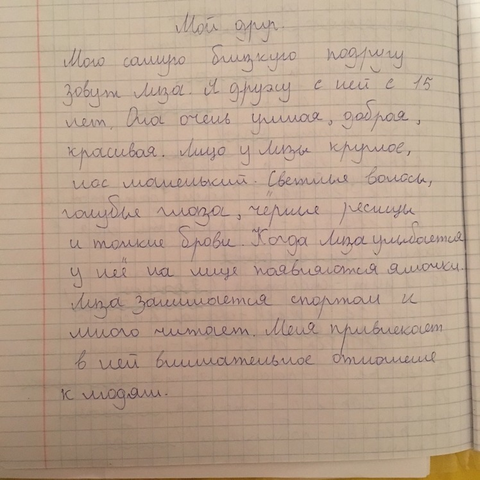 Мой друг.
Мою самую близкую подругу
зовут Лиза. Я дружу с ней с 15
лет. Она очень умная, добрая,
красивая. Лицо у Лизы круглое,
нос маленький. Светлые волосы,
голубые глаза, чёрные ресницы
и тонкие брови. Когда Лиза улыбается
у неё на лице появляются ямочки.
Лиза занимается спортом и
много читает. Меня привлекает
в ней внимательное отношение
к людям.